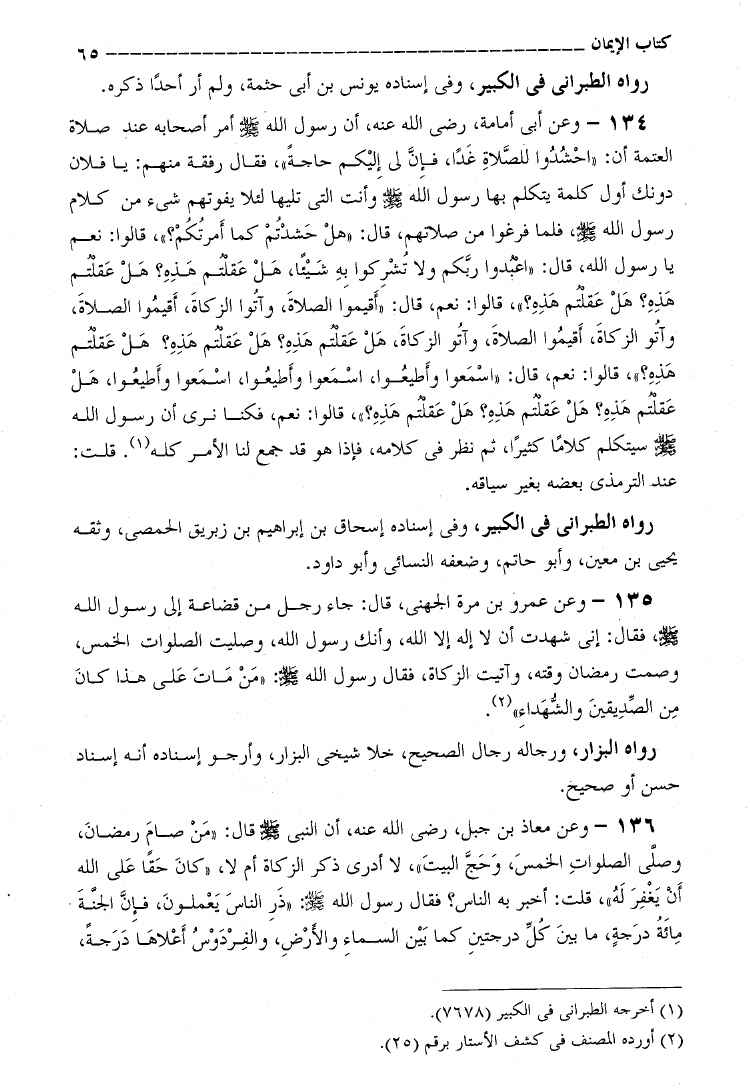 كتاب الإيمان ـــــــــــــــــــــــــــــــــــــــــــــــــ ٦٥
رواه الطبرانى فى الكبير، وفى إسناده يونس بن أبى حثمة، ولم أر أحدًا ذكره.
١٣٤ – وعن أبى أمامة، رضى الله عنه، أن رسول الله ﷺ أمر أصحابه عند صلاة
العتمة أن: «احْشُدُوا للصَّلاةِ غَدًا، فَإنَّ لى إلَيْكم حاجةً»، فقال رفقة منهم: يا فلان
دونك أول كلمة يتكلم بها رسول الله ﷺ وأنت التى تليها لئلا يفوتهم شىء من كلام
رسول الله ﷺ، فلما فرغوا من صلاتهم، قال: «هلْ حَشدتُمْ كما أَمرتُكُمْ؟»، قالوا: نعم
يا رسول الله، قال: «اعْبُدوا ربَّكم ولا تُشْرِكوا بِهِ شَيْئًا، هَلْ عَقلتُم هَذِهِ؟ هَلْ عَقلْتُم
هَذِهِ؟ هَلْ عَقلْتُم هَذِهِ؟»، قالوا: نعم، قال: «أقيموا الصلاةَ، وآتُوا الزكاةَ، أقيمُوا الصلاةَ،
وآتُو الزكاةَ، أقيمُوا الصلاةَ، وآتُو الزكاةَ، هَلْ عَقلْتُم هَذِهِ؟ هَلْ عَقلْتُم هَذِهِ؟ هَلْ عَقلْتُم
هَذِهِ؟»، قالوا: نعم، قال: «اسْمَعوا وأطيعُوا، اسْمَعوا وأطيعُوا، اسْمَعوا وأطيعُوا، هَلْ
عَقلْتُم هَذِهِ؟ هَلْ عَقلْتُم هَذه؟ هَلْ عَقلْتُم هَذِهِ؟»، قالوا: نعم، فكنا نرى أن رسول الله
ﷺ سيتكلم كلامًا كثيرًا، ثم نظر فى كلامه، فإذا هو قد جمع لنا الأمر كله(١). قلت:
عند الترمذى بعضه بغير سياقه.
رواه الطبرانى فى الكبير، وفى إسناده إسحاق بن إبراهيم بن زبريق الحمصى، وثقه
يحيى بن معين، وأبو حاتم، وضعفه النسائى وأبو داود.
١٣٥ – وعن عمرو بن مرة الجهنى، قال: جاء رجل من قضاعة إلى رسول الله
ﷺ، فقال: إنى شهدت أن لا إله إلا الله، وأنك رسول الله، وصليت الصلوات الخمس،
وصمت رمضان وقته، وآتيت الزكاة، فقال رسول الله ﷺ: «مَنْ مَاتَ عَلى هذا كانَ
مِن الصِّدِيقينَ والشُّهَداءِ»(٢).
رواه البزار، ورجاله رجال الصحيح، خلا شيخى البزار، وأرجو إسناده أنه إسناد
حسن أو صحيح.
١٣٦ – وعن معاذ بن جبل، رضى الله عنه، أن النبى ﷺ قال: «مَنْ صامَ رمضانَ،
وصلَّى الصلواتِ الخمسَ، وَحَجَّ البيتَ»، لا أدرى ذكر الزكاة أم لا، «كانَ حَقًا عَلى الله
أنْ يَغْفِرَ لَهُ»، قلت: أخبر به الناس؟ فقال رسول الله ﷺ: «ذَرِ الناسَ يَعْملونَ، فإنَّ الجنَّةَ
مِائَةُ درَجةٍ، ما بينَ كُلِّ درجتينِ كما بَيْن السماءِ والأَرْضِ، والفِرْدَوْسُ أعْلاهَا دَرَجةً،
(١) أخرجه الطبرانى فى الكبير (٧٦٧٨).
(٢) أورده المصنف فى كشف الأستار برقم (٢٥).